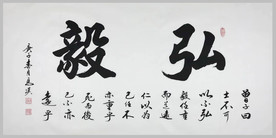 弘毅
曾子曰
士不可
以不弘
毅任重
而道遠
仁以為
己任不
亦重乎
死而後
已不亦
遠乎
庚子春月